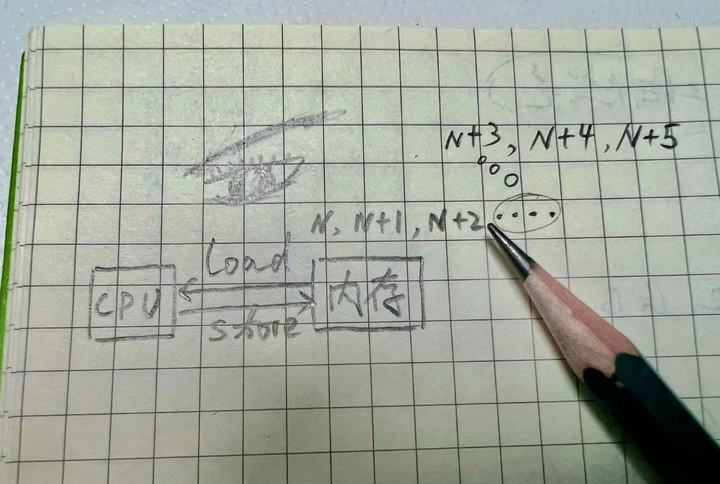 N+3, N+4, N+5
N, N+1, N+2 ....
Load
CPU
内存
store